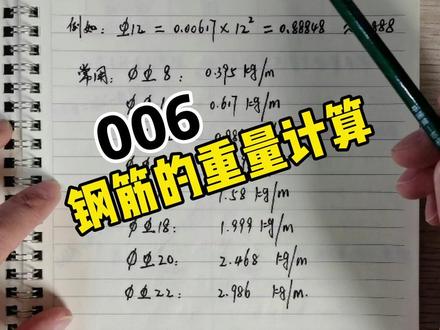 例如: Φ12 = 0.00617 × 12² = 0.88848
常用: ΦΦ 8: 0.395 kg/m
0.617 kg/m
006
钢筋的重量计算
1.58 kg/m
ΦΦ 18: 1.999 kg/m
ΦΦ 20: 2.468 kg/m
ΦΦ 22: 2.986 kg/m.